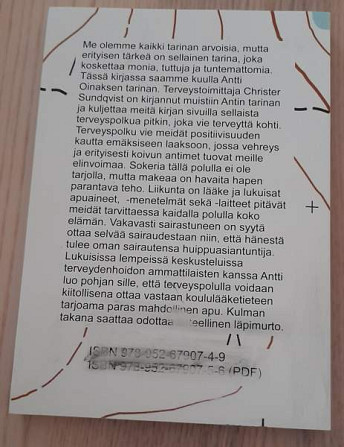 Me olemme kaikki tarinan arvoisia, mutta
erityisen tärkeä on sellainen tarina, joka
koskettaa monia, tuttuja ja tuntemattomia.
Tässä kirjassa saamme kuulla Antti
Oinaksen tarinan. Terveystoimittaja Christer
Sundqvist on kirjannut muistiin Antin tarinan
ja kuljettaa meitä kirjan sivuilla sellaista
terveyspolkua pitkin, joka vie terveyttä kohti.
Terveyspolku vie meidät positiivisuuden
kautta emäksiseen laaksoon, jossa vehreys
ja erityisesti koivun antimet tuovat meille
elinvoimaa. Sokeria tällä polulla ei ole
tarjolla, mutta makeaa on havaita hapen
parantava teho. Liikunta on lääke ja lukuisat
apuaineet, -menetelmät sekä -laitteet pitävät
meidät tarvittaessa kaidalla polulla koko
elämän. Vakavasti sairastuneen on syytä
ottaa selvää sairaudestaan niin, että hänestä
tulee oman sairautensa huippuasiantuntija.
Lukuisissa lempeissä keskusteluissa
terveydenhoidon ammattilaisten kanssa Antti
luo pohjan sille, että terveyspolulla voidaan
kiitollisena ottaa vastaan koululääketieteen
tarjoama paras mahdollinen apu. Kulman
takana saattaa odottaa läpimurto.
ISBN 978-952-67907-4-9
(PDF)